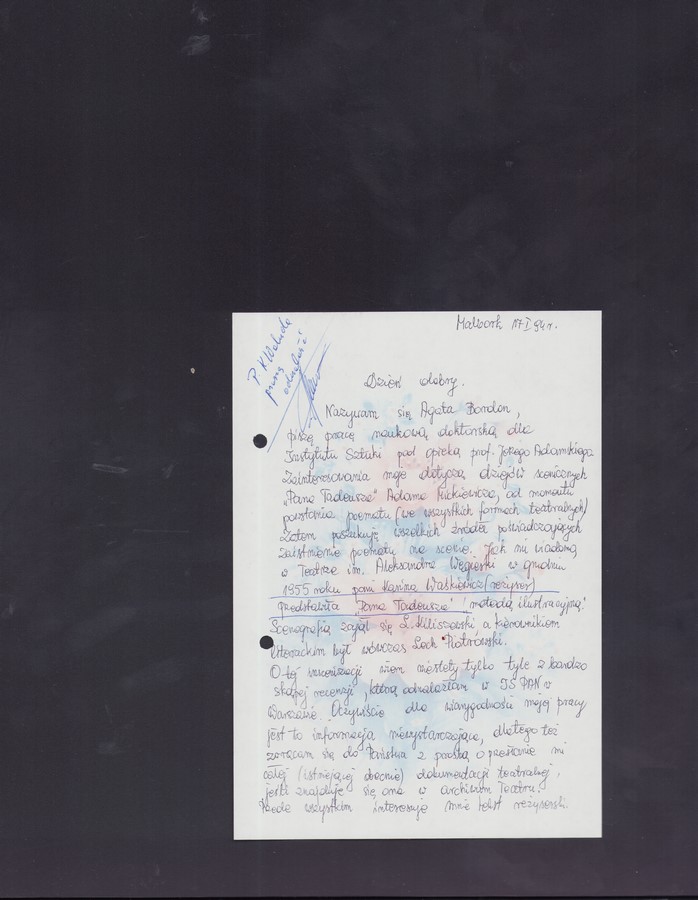 Malbork 17 I 94 r.
P. K.
proszę
odnaleźć
Dzień dobry.
Nazywam się Agata Bondon,
piszę pracę naukową doktorską dla
Instytutu Sztuki pod opieką prof. Jerzego Adamskiego
Zainteresowania moje dotyczą dziejów scenicznych
„Pana Tadeusza" Adama Mickiewicza, od momentu
powstania poematu (we wszystkich formach teatralnych)
Zatem poszukuję wszelkich źródeł poświadczających
zaistnienie poematu na scenie. Jak mi wiadomo
w Teatrze im. Aleksandra Węgierki w grudniu
1955 roku pani Waśkiewicz (reżyser)
przedstawiła „Pana Tadeusza" "metodą ilustracyjną."
Scenografią zajął się L. Miliszewski a kierownikiem
literackim był wówczas Lech Piotrowski.
O tej inscenizacji wiem niestety tylko tyle z bardzo
skąpej recenzji, którą odnalazłam w IS PAN w
Warszawie. Oczywiście dla wiarygodności mojej pracy
jest to informacja niewystarczająca, dlatego też
zwracam się do Państwa z prośbą o przesłanie mi
całej (istniejącej obecnie) dokumentacji teatralnej,
jeśli znajduje się ona w archiwum Teatru.
Przede wszystkim interesuje mnie tekst reżyserski.